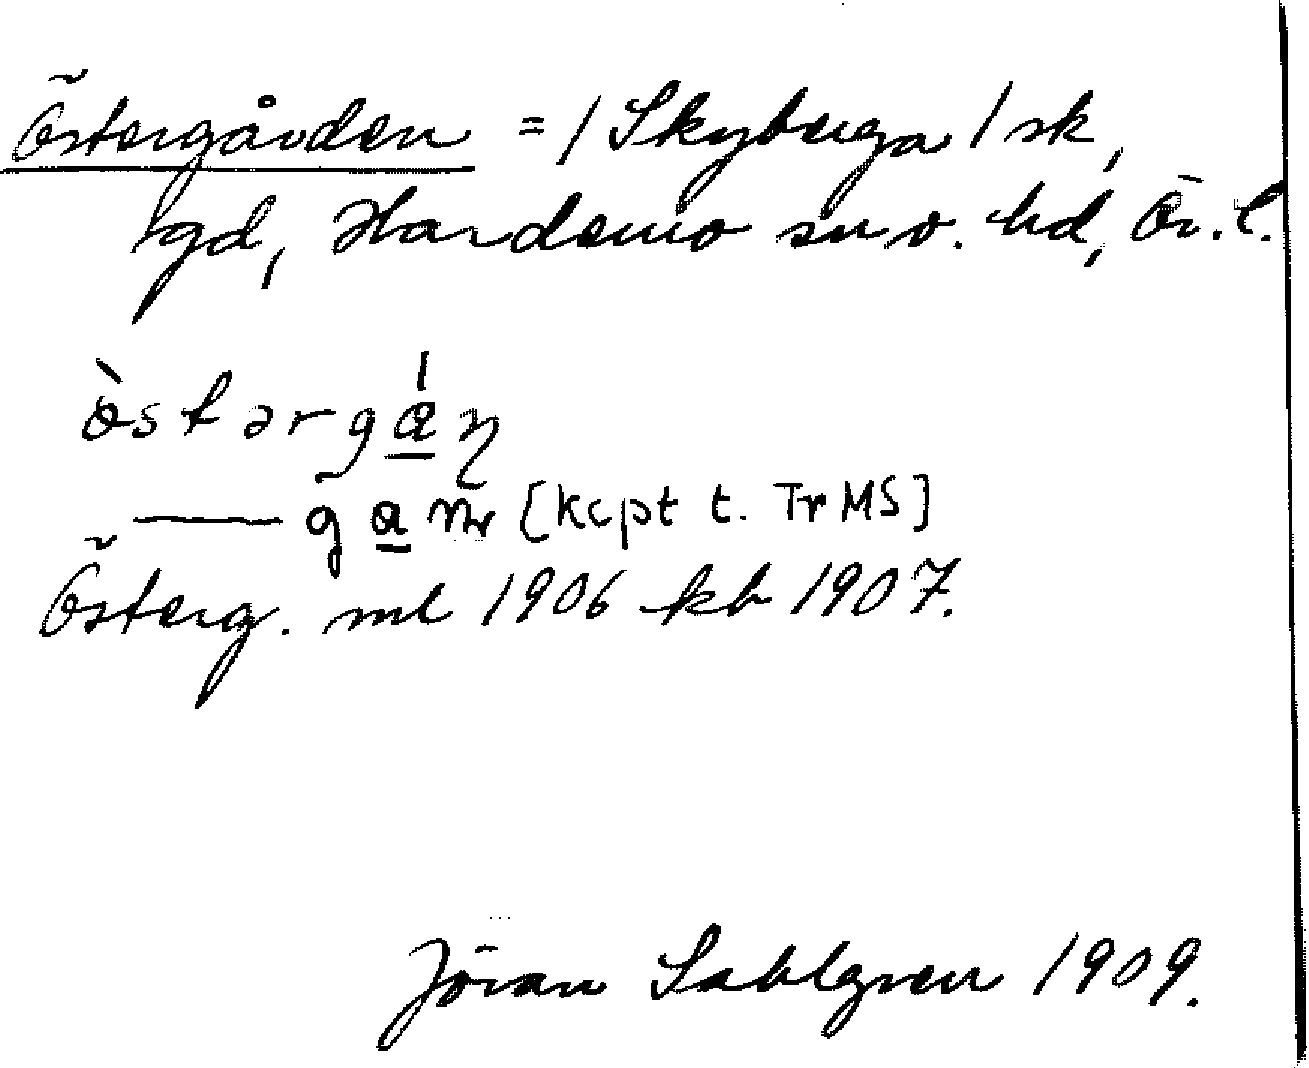 Östergården = / Skyberga / sk,
gd, Hardemo sn o. hd, Ör. l.
ö̀stərgá̱ɳ
——— ga̱ [kcpt t. Tr MS]
Österg. ml 1906 kb 1907.
Jöran Sahlgren 1909.